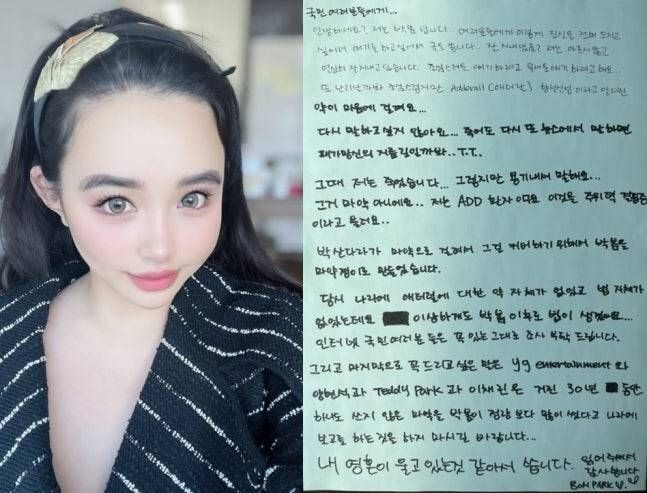 국민 여러분들에게...
안녕하세요? 저는 박봄 입니다. 여러분들에게 이렇게 진심을 전해 드리고
싶어서 얘기를 하고싶어서 글을 씁니다. 잘 지내셨죠? 저는 아프지않고
열심히 잘지내고 있습니다. 조심스러운 얘기 하려고
또 난리날까봐 조심스럽지만 Adderall (애더럴)
약이 마음에 걸려요...
다시 말하고 싶지 않아요... 죽어도 다시 또 뉴스에서 말하면
패가망신의 지름길일까봐.. T.T..
그때 저는 죽었습니다... 그렇지만 용기내서 말해요...
그거 마약 아니에요.. 저는 ADD 환자 이며요 이것을 주위력 결핍증
이라고 불러요..
박산다라가 마약으로 걸려서 그걸 커버하기 위해서 박봄을
마약쟁이로 만들었습니다.
당시 나라에 애더럴에 대한 약 자체가 없었고 법 자체가
없었는데요 이상하게도 박봄 이후로 법이 생겼어요...
인터넷 국민여러분 들은 꼭 있는그대로 조사 부탁 드립니다.
그리고 마지막으로 꼭 드리고 싶은 말은 yg entertainment 와
양현석과 Teddy Park 과 이채린은 거진 30년 동안
하나도 쓰지 않은 마약을 박봄이 정량 보다 많이 썼다고 나라에
보고를 하는것은 하지 마시길 바랍니다...
내 영혼이 울고 있는것 같아서 씁니다. 읽어주셔서
감사합니다
BOM PARK